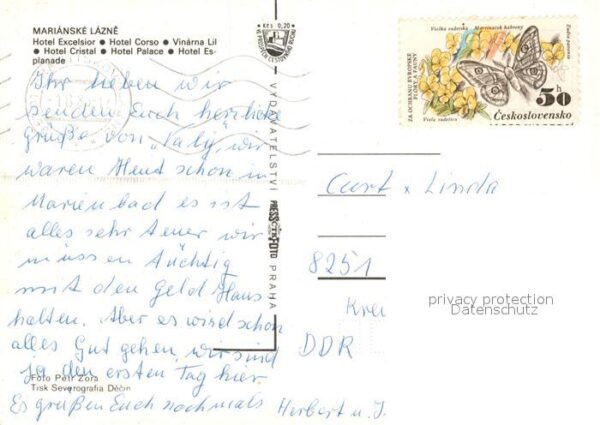 MARIÁNSKÉ LÁZNĚ
Hotel Excelsior ● Hotel Corso ● Vinárna Lil
● Hotel Cristal ● Hotel Palace ● Hotel Es-
planade
Ihr lieben wir
senden Euch herzliche
Grüße von "Valy", wir
waren Heut schon in
Marienbad es ist
alles sehr teuer wir
müssen tüchtig
mit den Geld Haus
halten. Aber es wird schon
alles Gut gehen, wir sind
ja den ersten Tag hier.
Es grüßen Euch nochmals Herbert u. I
Foto Petr Zora
Tisk Severografia Děčín
Kčs 0,20
VYDAVATELSTVÍ PRESSFOTO PRAHA
ZA OCHRANU EVROPSKÉ
FLÓRY A FAUNY
Viola sudetica
50 h
Československo
Curt x Linda
8251
Krei
DDR
privacy protection
Datenschutz